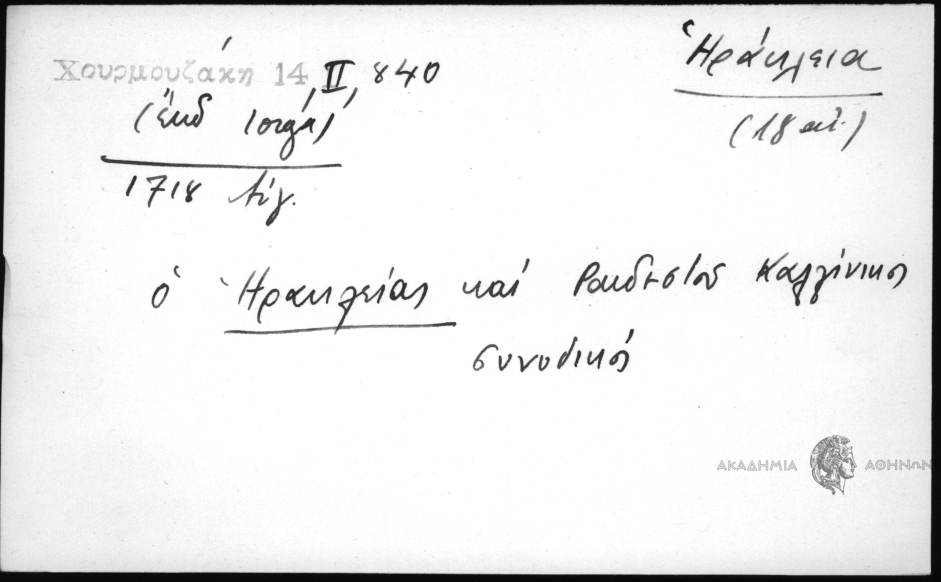 Χουρμουζάκη 14, II, 840
Ἡράκλεια
(ἔκδ Ιοργά)
(18 αἰ.)
1718 Αὔγ.
ὁ Ἡρακλείας καί Ραιδεστοῦ Καλλίνικος
συνοδικός
ΑΚΑΔΗΜΙΑ ΑΘΗΝΩΝ